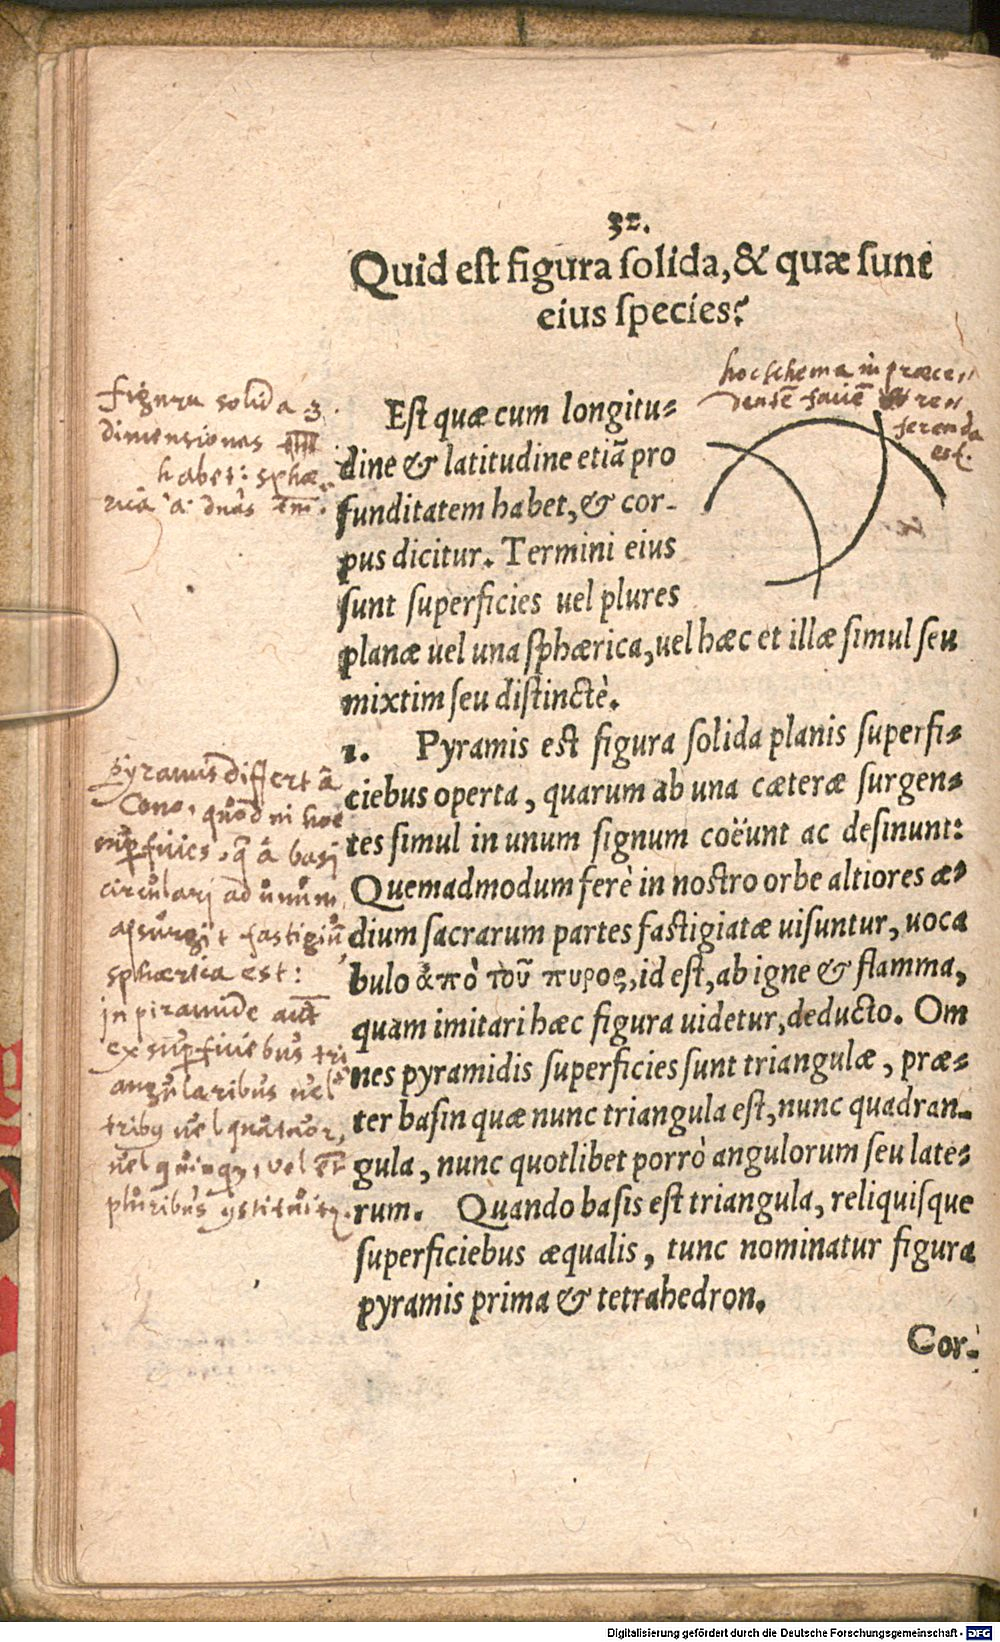 32.
Quid est figura solida, & quæ sunt
eius species?
hoc schema in præce-
dentē faciē re-
ferenda
est.
Figura solida 3
dimensiones
habet: sphæ-
rica
Est quæ cum longitu-
dine & latitudine etiã pro
funditatem habet, & cor-
pus dicitur. Termini eius
sunt superficies uel plures
planæ uel una sphærica, uel hæc et illæ simul seu
mixtim seu distinctè.
1. Pyramis est figura solida planis superfi-
ciebus operta, quarum ab una cæteræ surgen-
tes simul in unum signum coëunt ac desinunt:
Quemadmodum ferè in nostro orbe altiores æ-
dium sacrarum partes fastigiatæ uisuntur, uoca
bulo ἀπὸ τοῦ πυρος, id est, ab igne & flamma,
quam imitari hæc figura uidetur, deducto. Om
nes pyramidis superficies sunt triangulæ, præ-
ter basin quæ nunc triangula est, nunc quadran-
gula, nunc quotlibet porrò angulorum seu late-
rum. Quando basis est triangula, reliquisque
superficiebus æqualis, tunc nominatur figura
pyramis prima & tetrahedron.
Pyramis differt â
Cono, quod in hoc
supficies, q̃ â basi
circulari ad unum
assurgit fastigiũ
sphærica est:
in piramide aut̃
ex supficiebus tri
angularibus uel
tribus uel quatuor,
uel quinq;, vel
pluribus
Cor-
Digitalisierung gefördert durch die Deutsche Forschungsgemeinschaft - DFG